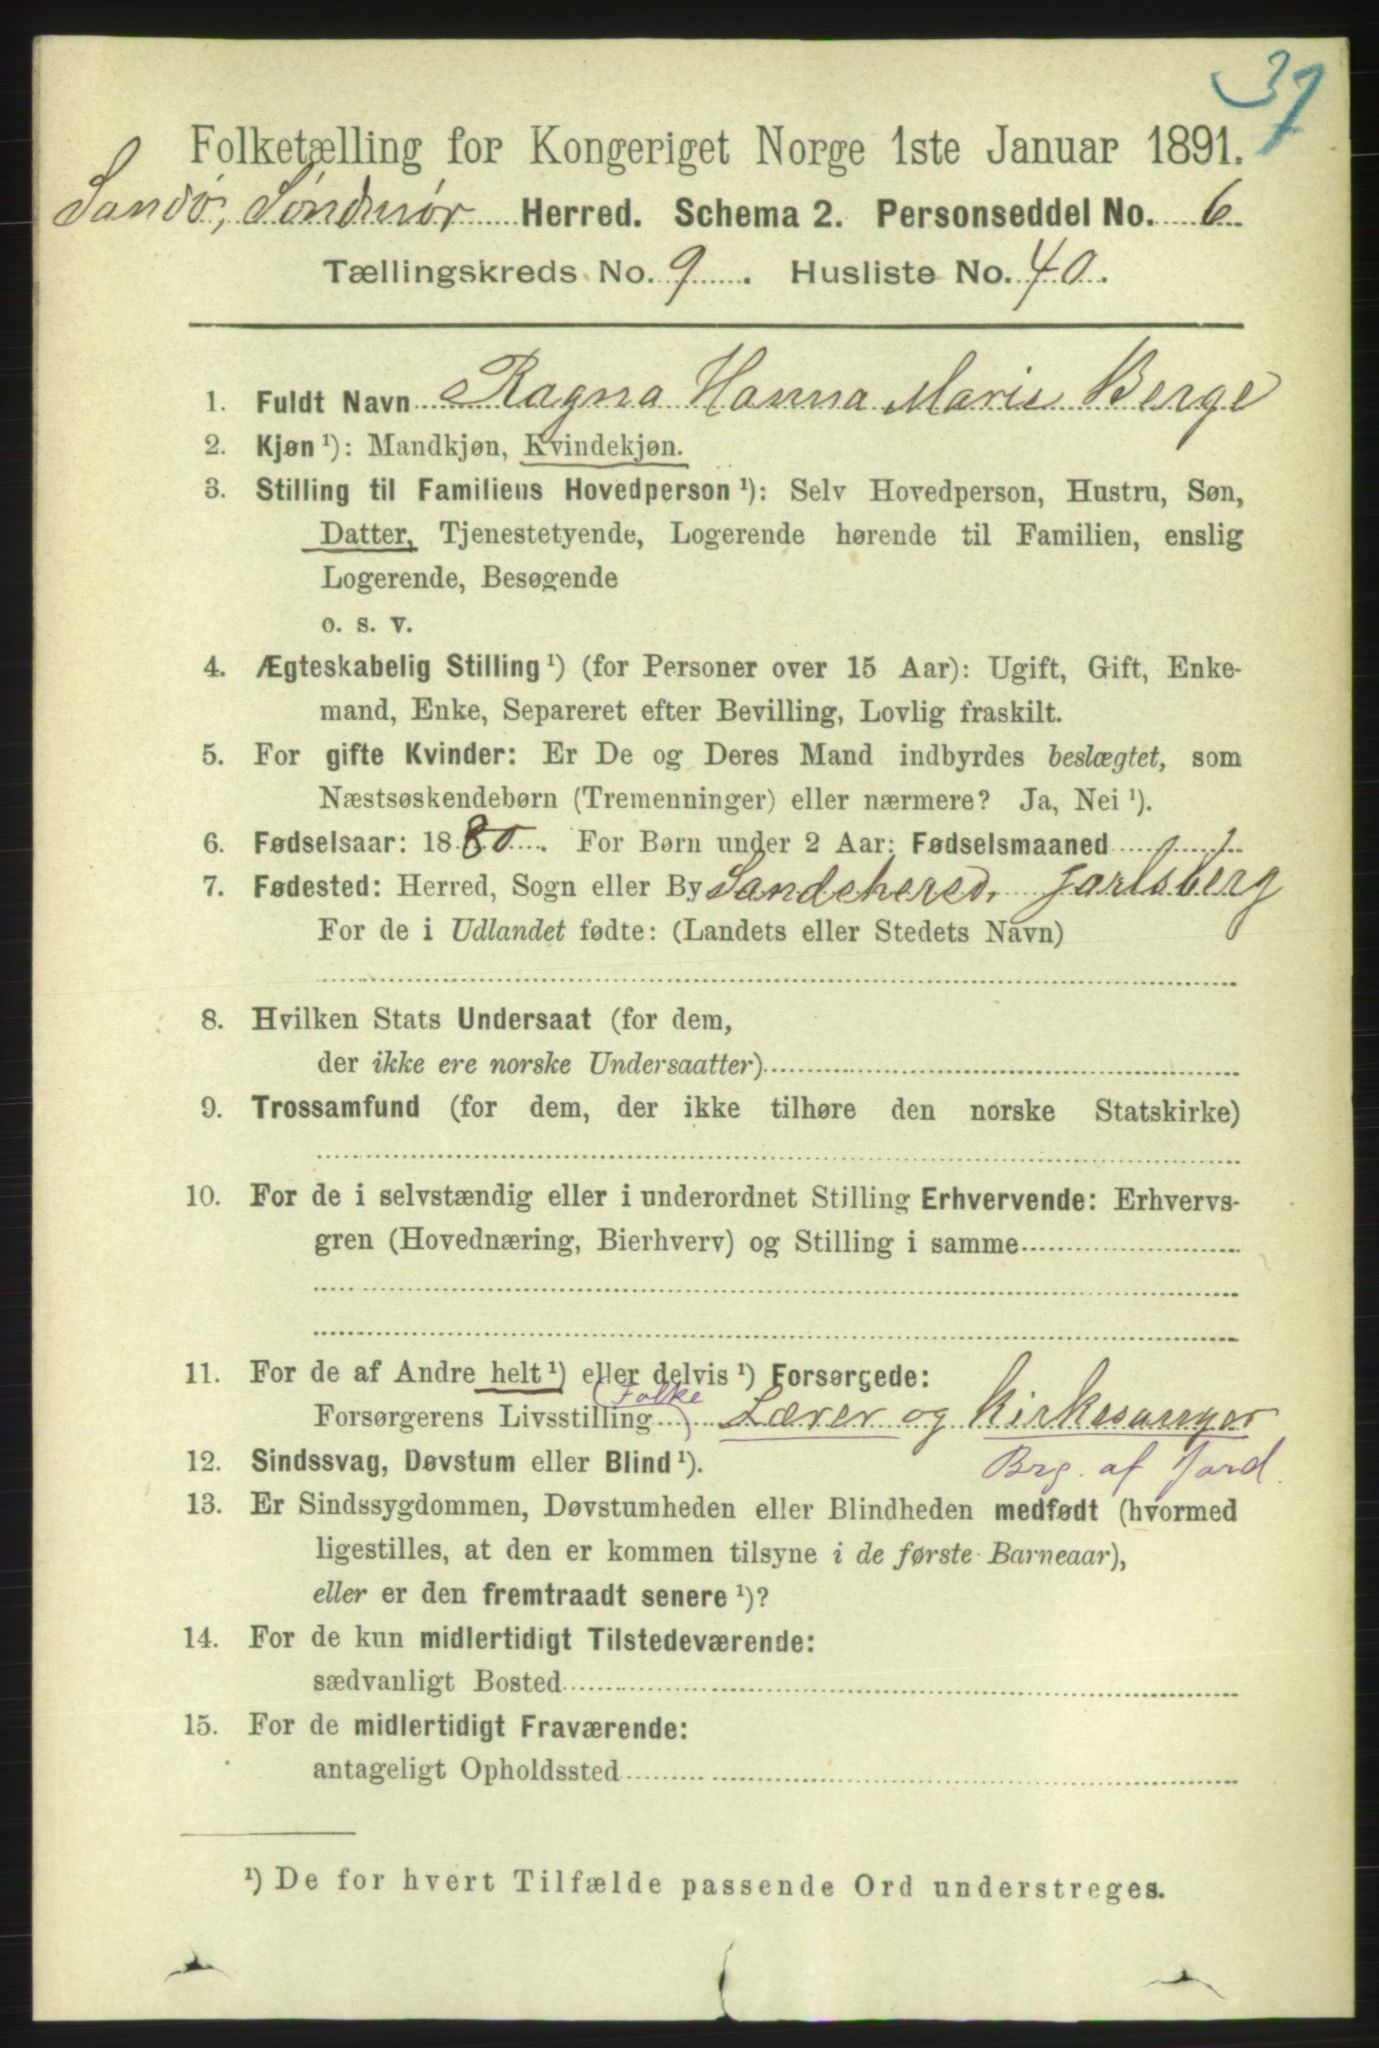 37
Folketælling for Kongeriget Norge 1ste Januar 1891.
Sandø, Søndmør Herred. Schema 2. Personseddel No. 6
Tællingskreds No. 9. Husliste No. 40.
1. Fuldt Navn Ragna Hanna Marie Berge
2. Kjøn ¹): Mandkjøn, Kvindekjøn.
3. Stilling til Familiens Hovedperson ¹): Selv Hovedperson, Hustru, Søn,
Datter, Tjenestetyende, Logerende hørende til Familien, enslig
Logerende, Besøgende
o. s. v.
4. Ægteskabelig Stilling ¹) (for Personer over 15 Aar): Ugift, Gift, Enke-
mand, Enke, Separeret efter Bevilling, Lovlig fraskilt.
5. For gifte Kvinder: Er De og Deres Mand indbyrdes beslægtet, som
Næstsøskendebørn (Tremenninger) eller nærmere? Ja, Nei ¹).
6. Fødselsaar: 1880. For Børn under 2 Aar: Fødselsmaaned
7. Fødested: Herred, Sogn eller By Sandehered, Jarlsberg
For de i Udlandet fødte: (Landets eller Stedets Navn)
8. Hvilken Stats Undersaat (for dem,
der ikke ere norske Undersaatter)
9. Trossamfund (for dem, der ikke tilhøre den norske Statskirke)
10. For de i selvstændig eller i underordnet Stilling Erhvervende: Erhvervs-
gren (Hovednæring, Bierhverv) og Stilling i samme
11. For de af Andre helt ¹) eller delvis ¹) Forsørgede:
(Folke)
Forsørgerens Livsstilling Lærer og Kirkesanger
12. Sindssvag, Døvstum eller Blind ¹). Brg. af Jord.
13. Er Sindssygdommen, Døvstumheden eller Blindheden medfødt (hvormed
ligestilles, at den er kommen tilsyne i de første Barneaar),
eller er den fremtraadt senere ¹)?
14. For de kun midlertidigt Tilstedeværende:
sædvanligt Bosted
15. For de midlertidigt Fraværende:
antageligt Opholdssted
¹) De for hvert Tilfælde passende Ord understreges.